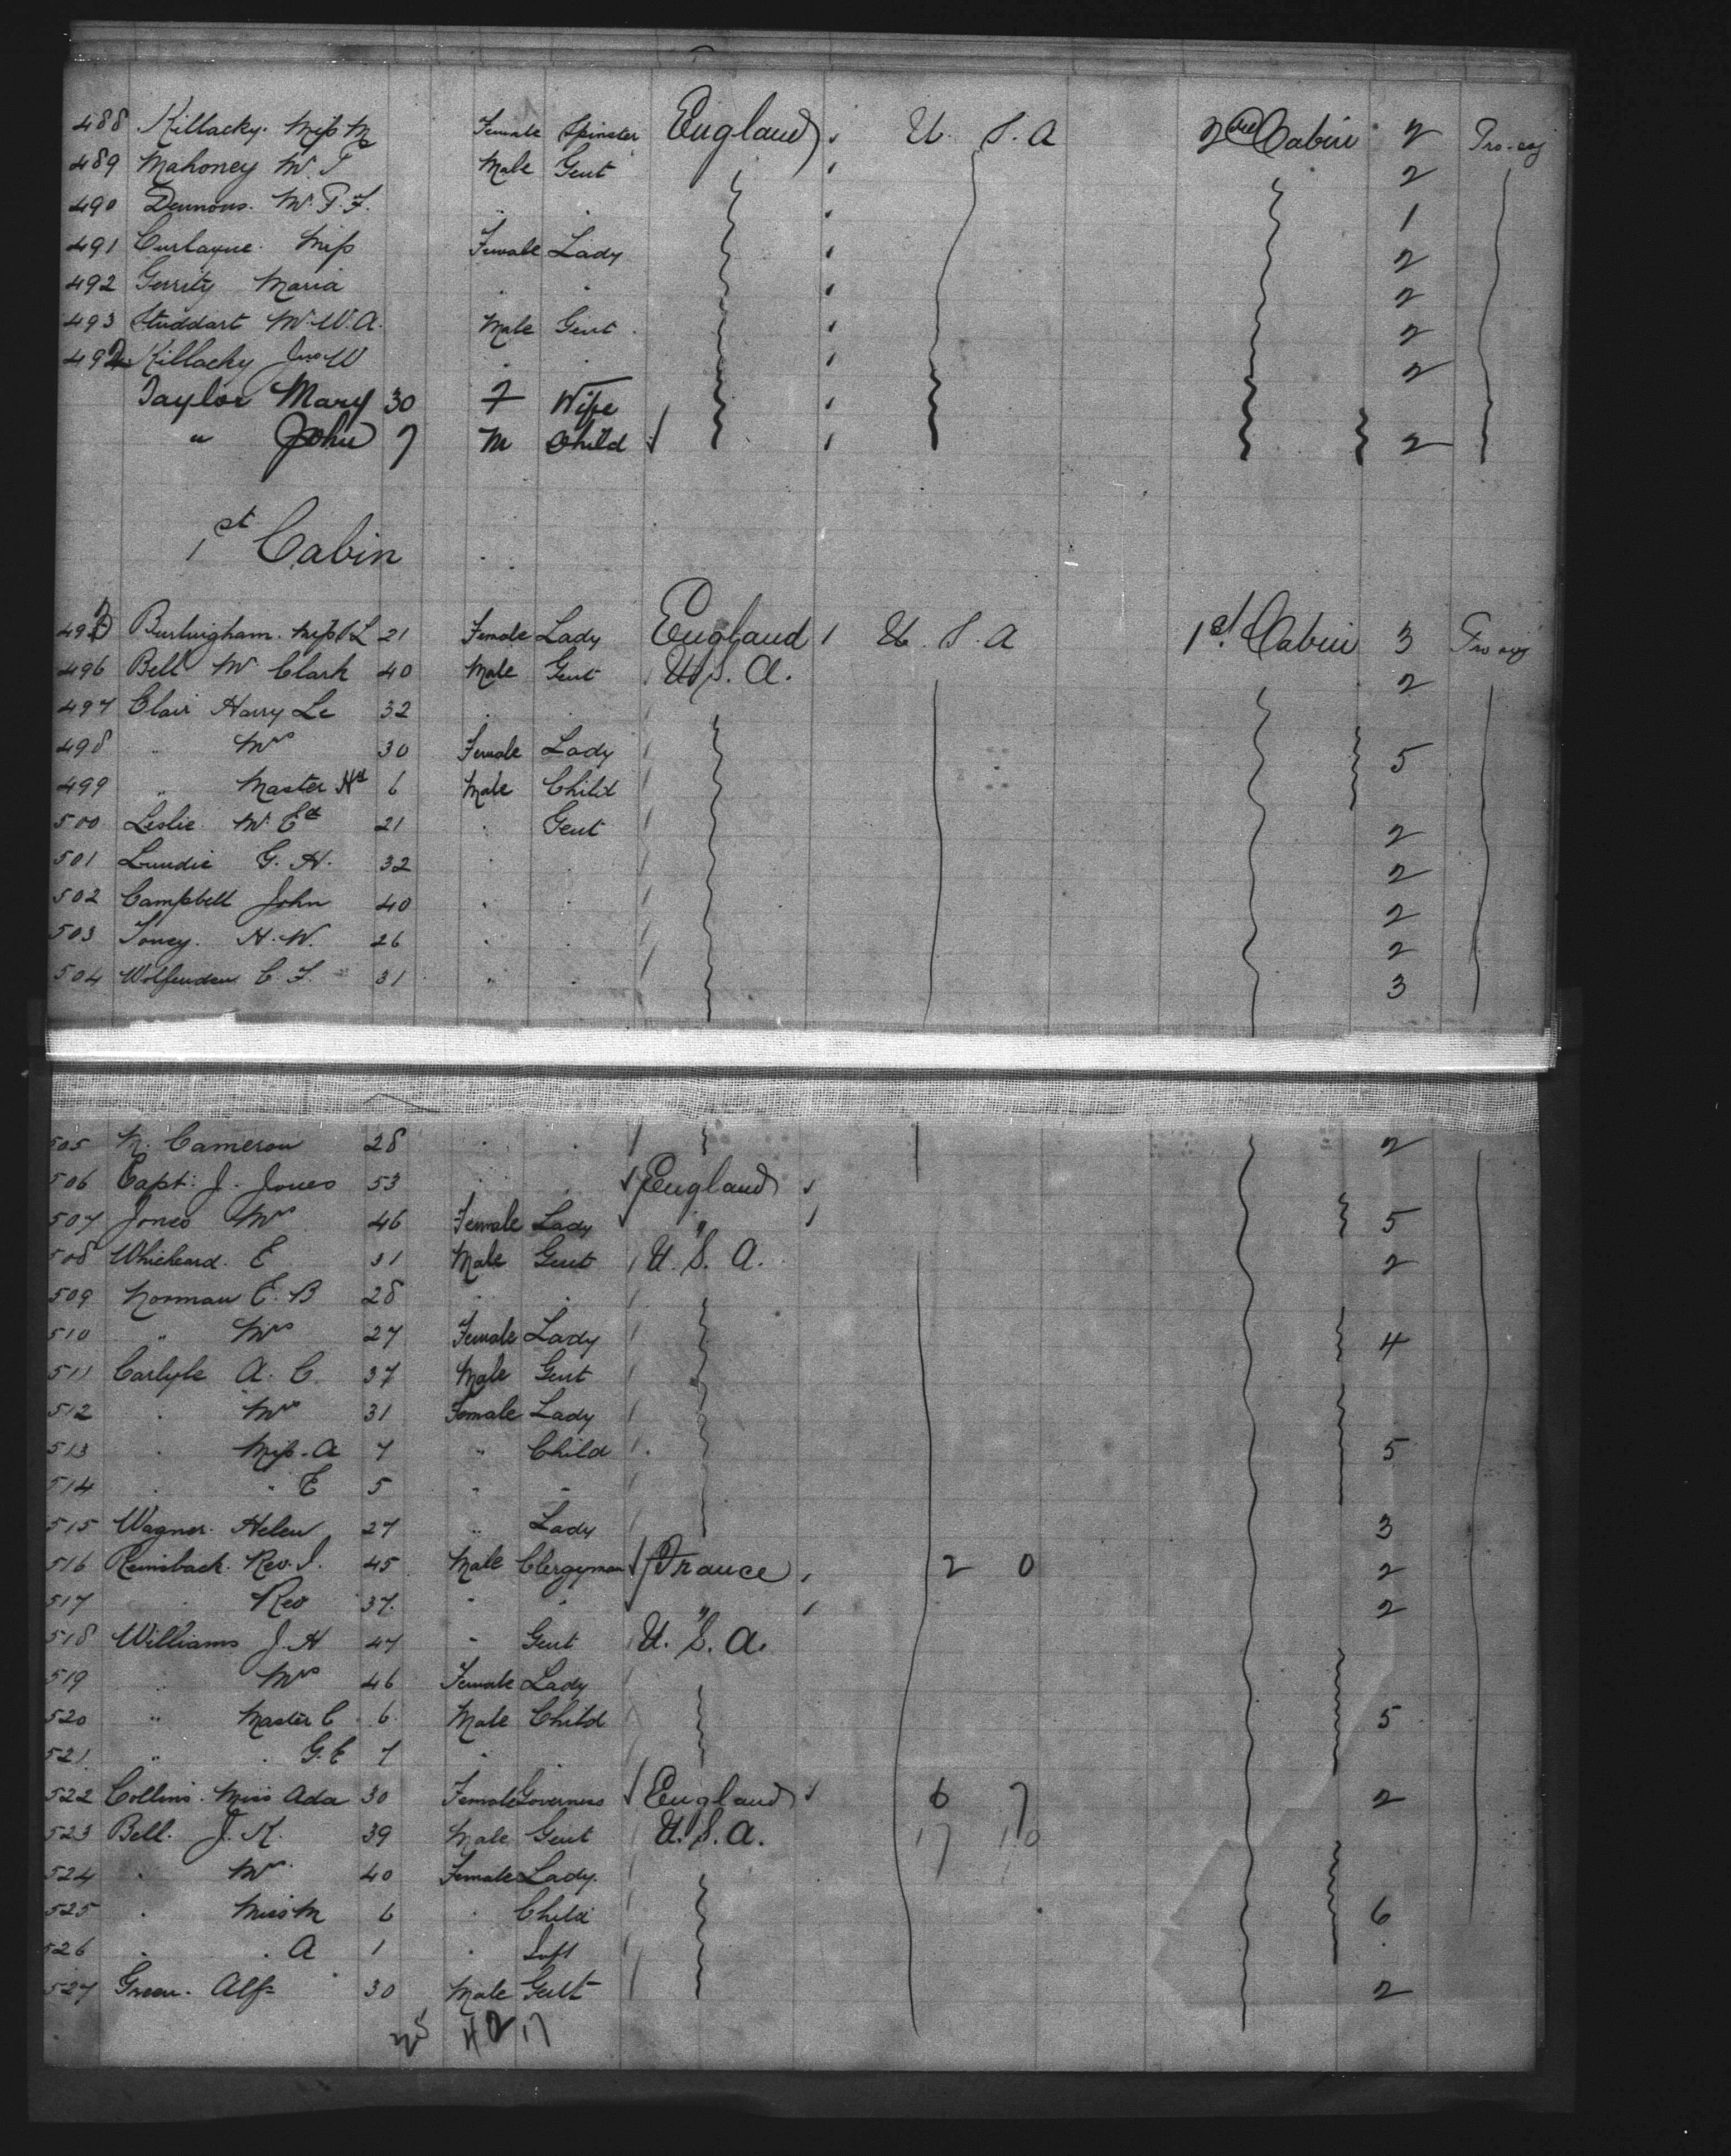 488 Killacky. Miss M Female Spinster England U. S. A 2nd Cabin 2
489 Mahoney Mr. T Male Gent 2
490 Mr. P. F. 1
491 Miss Female Lady 2
492 Gerrity Maria 2
493 Studdart Mr. W. A. Male Gent 2
494 Killacky Jno W 2
Taylor Mary 30 F Wife
" John 7 M Child 2
1st Cabin
Miss 21 Female Lady England U. S. A 1st Cabin 3
496 Bell Mr Clark 40 Male Gent U. S. A. 2
497 Clair Harry Le 32
498 " Mrs 30 Female Lady 5
499 " Master Hd 6 Male Child
500 Leslie Mr. Ed 21 Gent 2
501 Lundie G. H. 32 2
502 Campbell John 40 2
503 H. W. 26 2
504 Wolfenden C. F. 31 3
505 N. Cameron 28 2
506 Capt. J. Jones 53 England
507 Jones Mrs 46 Female Lady " 5
508 E 31 Male Gent U. S. A. 2
509 Norman E. B 28
510 " Mrs 27 Female Lady 4
511 Carlyle A. C. 37 Male Gent
512 Mrs 31 Female Lady
513 Miss. A 7 " Child 5
514 " E 5
515 Wagner. Helen 27 " Lady 3
516 Rev. J. 45 Male Clergyman France 2 0 2
517 Rev 37. " 2
518 Williams J. H 47 " Gent U. S. A.
519 " Mrs 46 Female Lady
520 " Master C 6 Male Child 5
521 " G. E 7
522 Collins. Miss Ada 30 Female Governess England 6 7 2
523 Bell. J. K. 39 Male Gent U. S. A. 17 10
524 Mrs 40 Female Lady
525 Miss M 6 Child 6
526 A 1 Inft
527 Green. Alf. 30 Male Gent 2